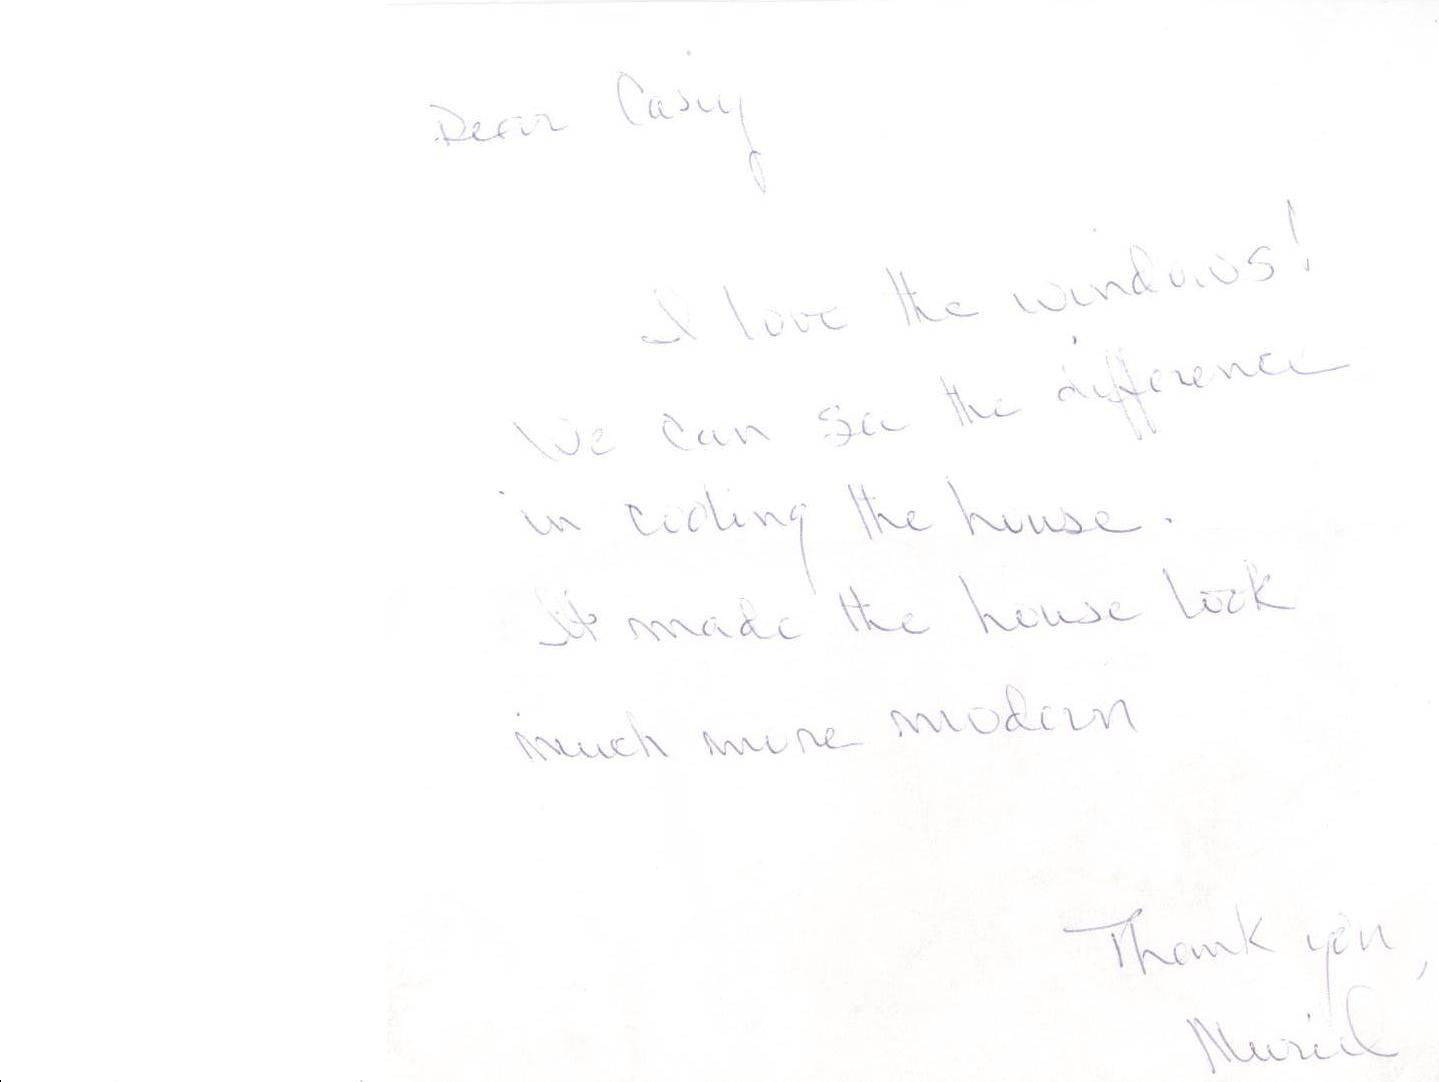 Dear Casey
I love the windows!
We can see the difference
in cooling the house.
It made the house look
much more modern
Thank you,
Muriel